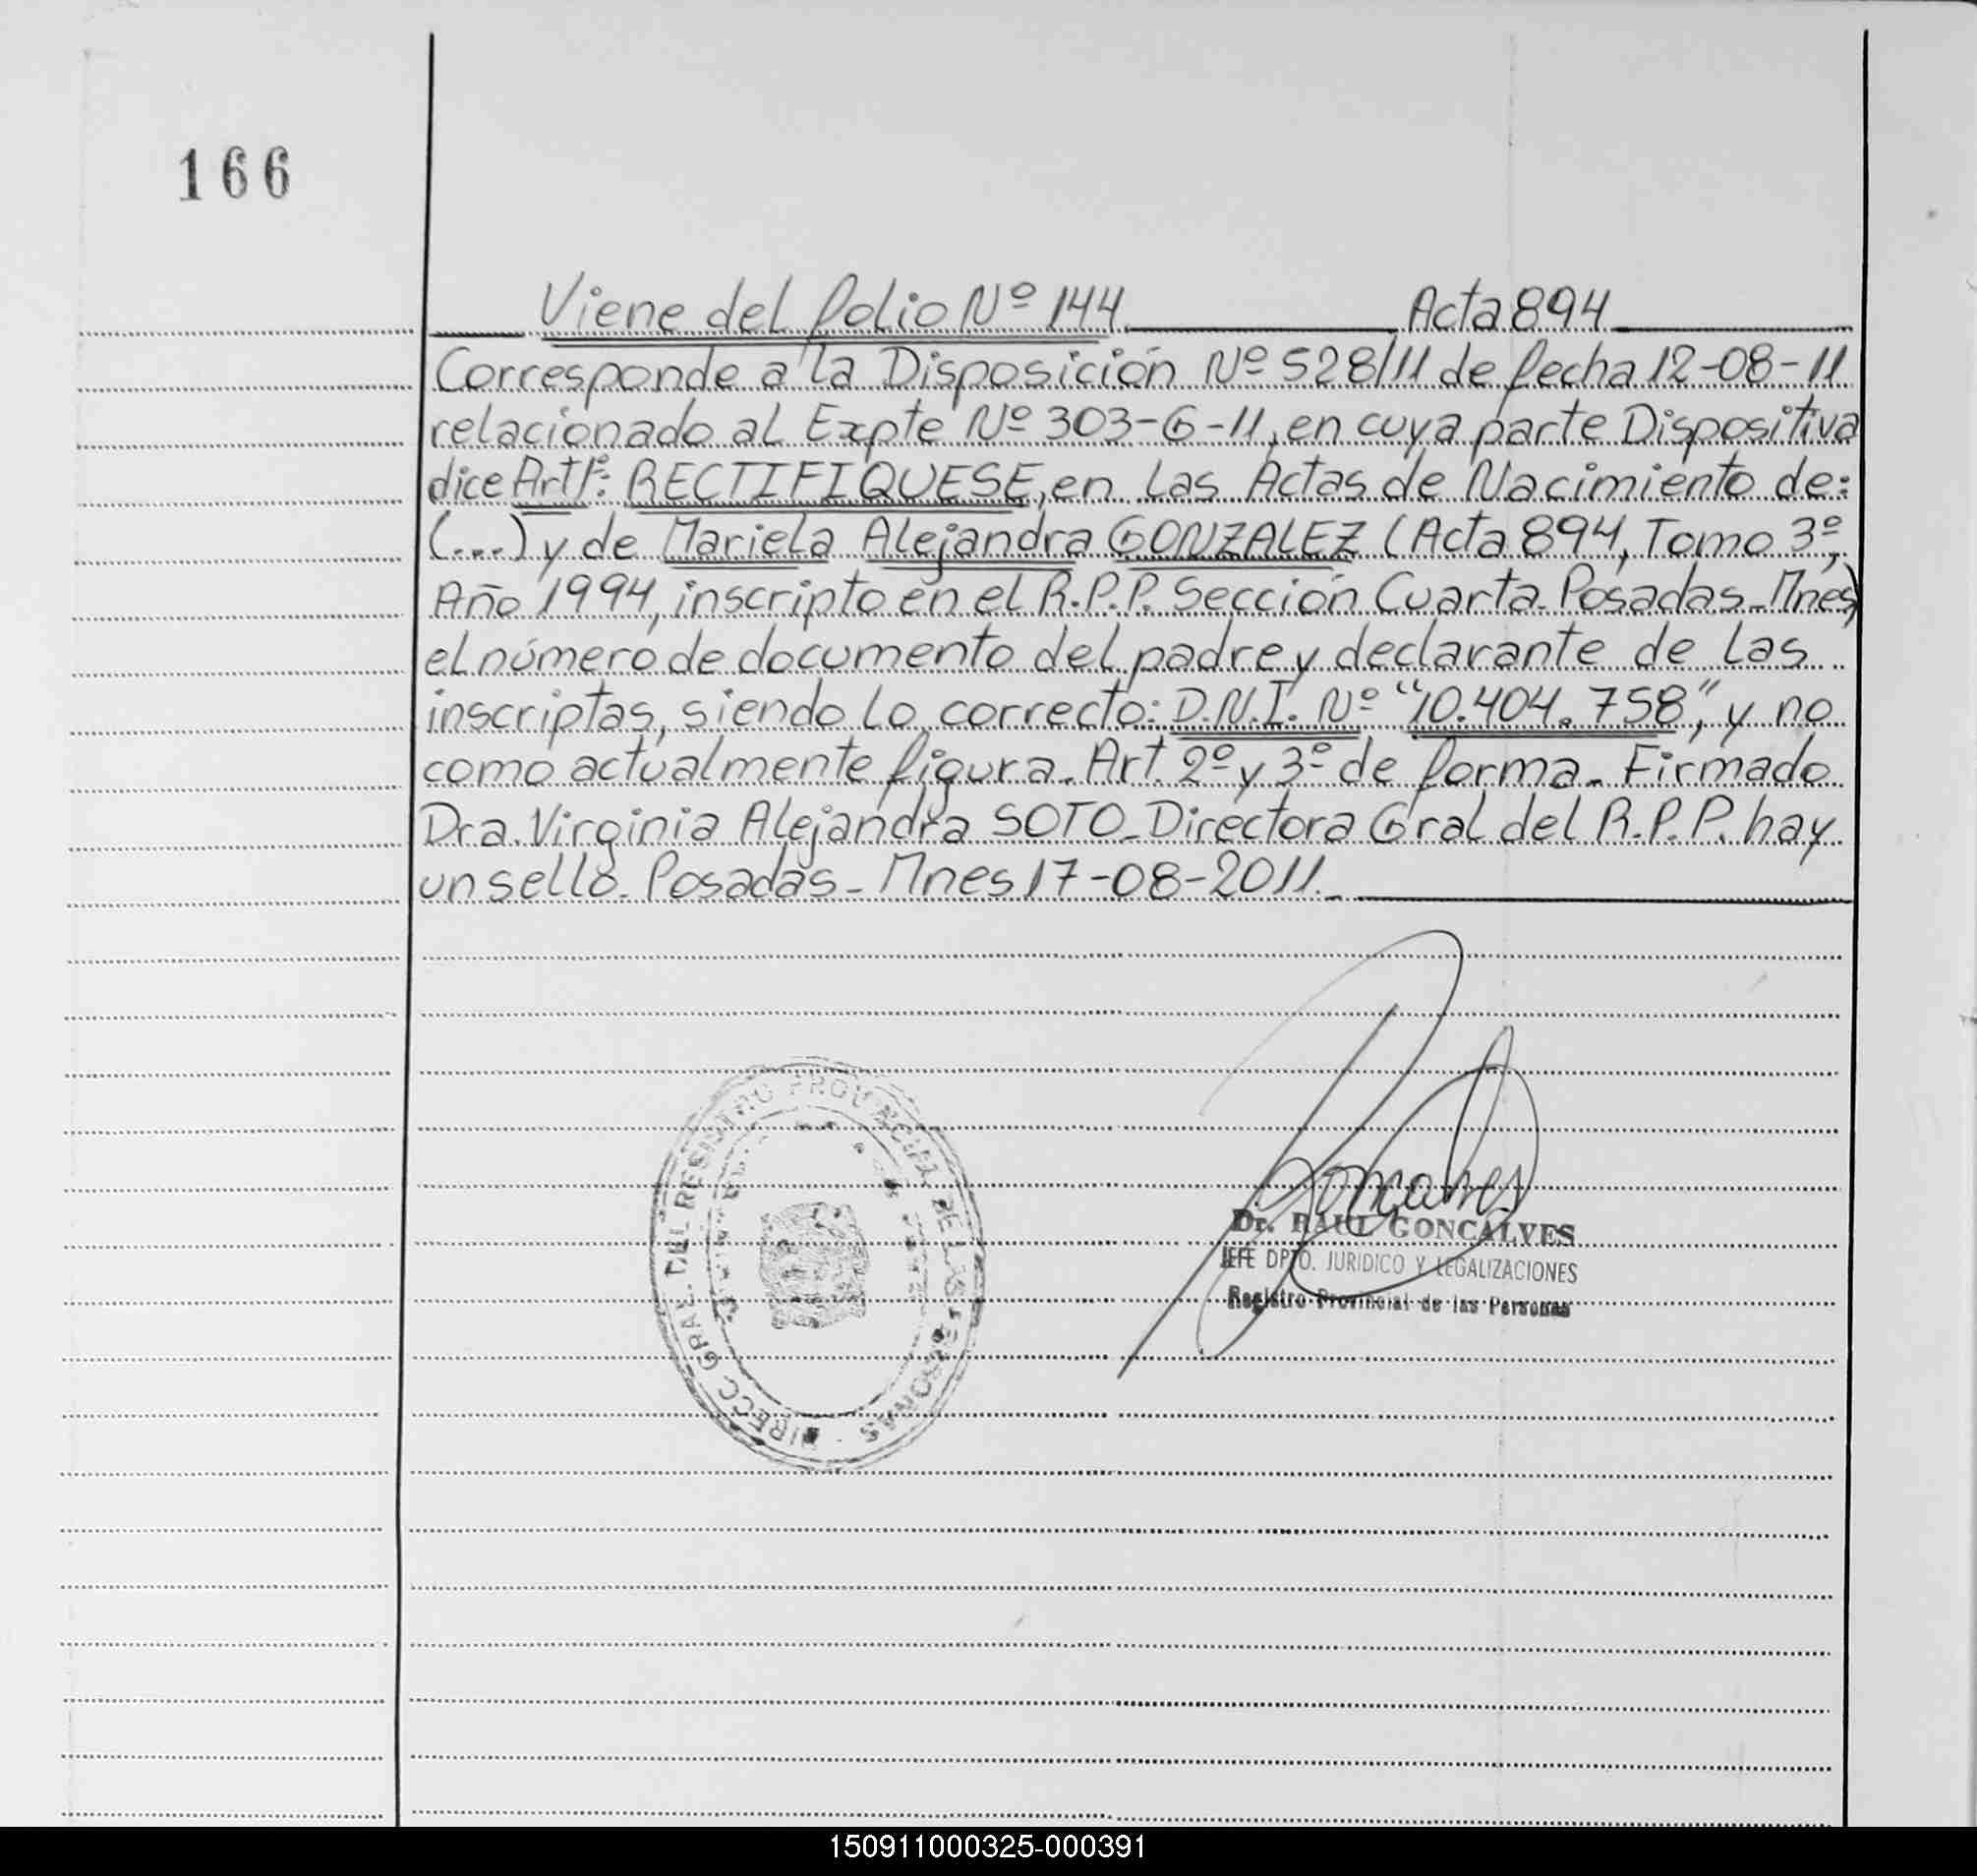 166
Viene del folio Nº 144 Acta 894
Corresponde a la Disposición Nº 528/11 de fecha 12-08-11
relacionado al Expte Nº 303-G-11, en cuya parte Dispositiva
dice Art 1º: RECTIFIQUESE, en las Actas de Nacimiento de:
(...) y de Mariela Alejandra GONZALEZ (Acta 894, Tomo 3º,
Año 1994, inscripto en el R.P.P. Sección Cuarta-Posadas-Mnes)
el número de documento del padre y declarante de las
inscriptas, siendo lo correcto: D.N.I. Nº "10.404.758", y no
como actualmente figura. Art. 2º y 3º de forma. Firmado
Dra. Virginia Alejandra SOTO-Directora Gral del R.P.P. hay
un sello. Posadas-Mnes 17-08-2011.-
DIRECC GRAL DEL REGISTRO PROVINCIAL DE LAS PERSONAS
Goncalves
Dr. RAUL GONCALVES
JEFE DPTO. JURIDICO Y LEGALIZACIONES
Registro Provincial de las Personas
150911000325-000391